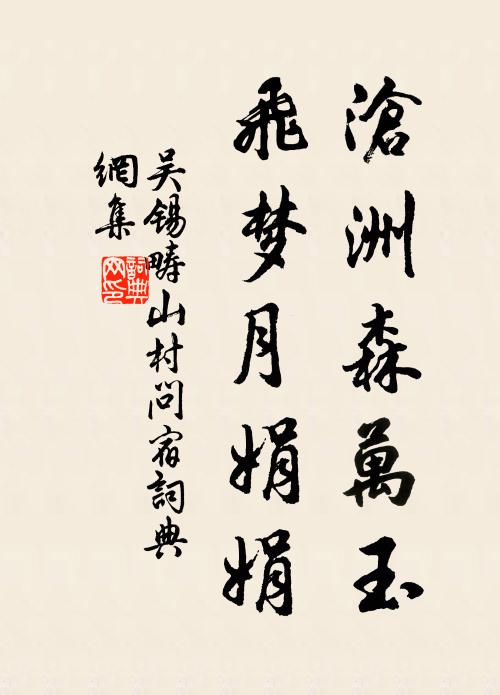 滄洲森萬玉
飛梦月娟娟
吴錫疇山村問宿詞典
網集
詞典
网印